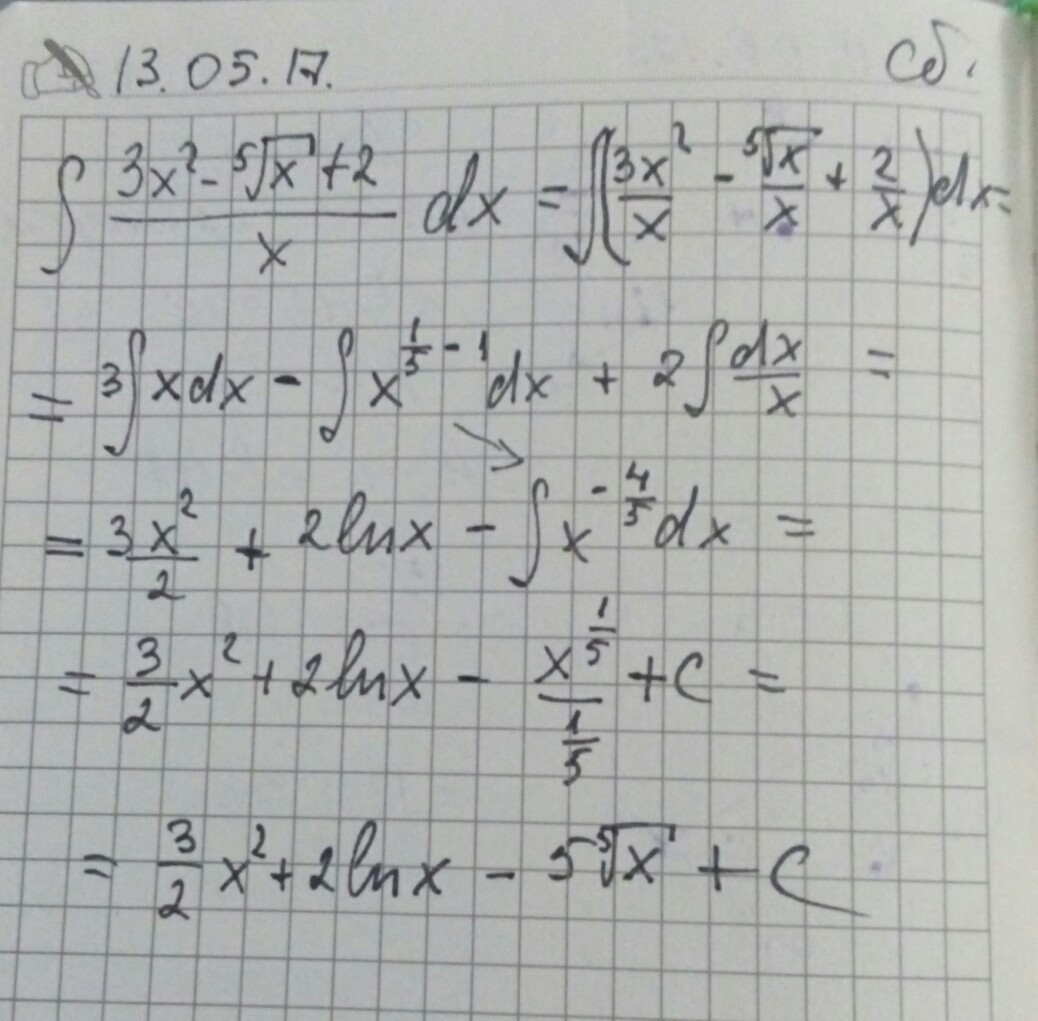 13.05.17. Сб.
∫ (3x² - ⁵√x + 2)/x dx = ∫(3x²/x - ⁵√x/x + 2/x)dx =
= 3∫xdx - ∫x^(1/5 - 1)dx + 2∫dx/x =
= 3x²/2 + 2lnx - ∫x^(-4/5)dx =
= 3/2 x² + 2lnx - x^(1/5)/(1/5) + C =
= 3/2 x² + 2lnx - 5⁵√x + C